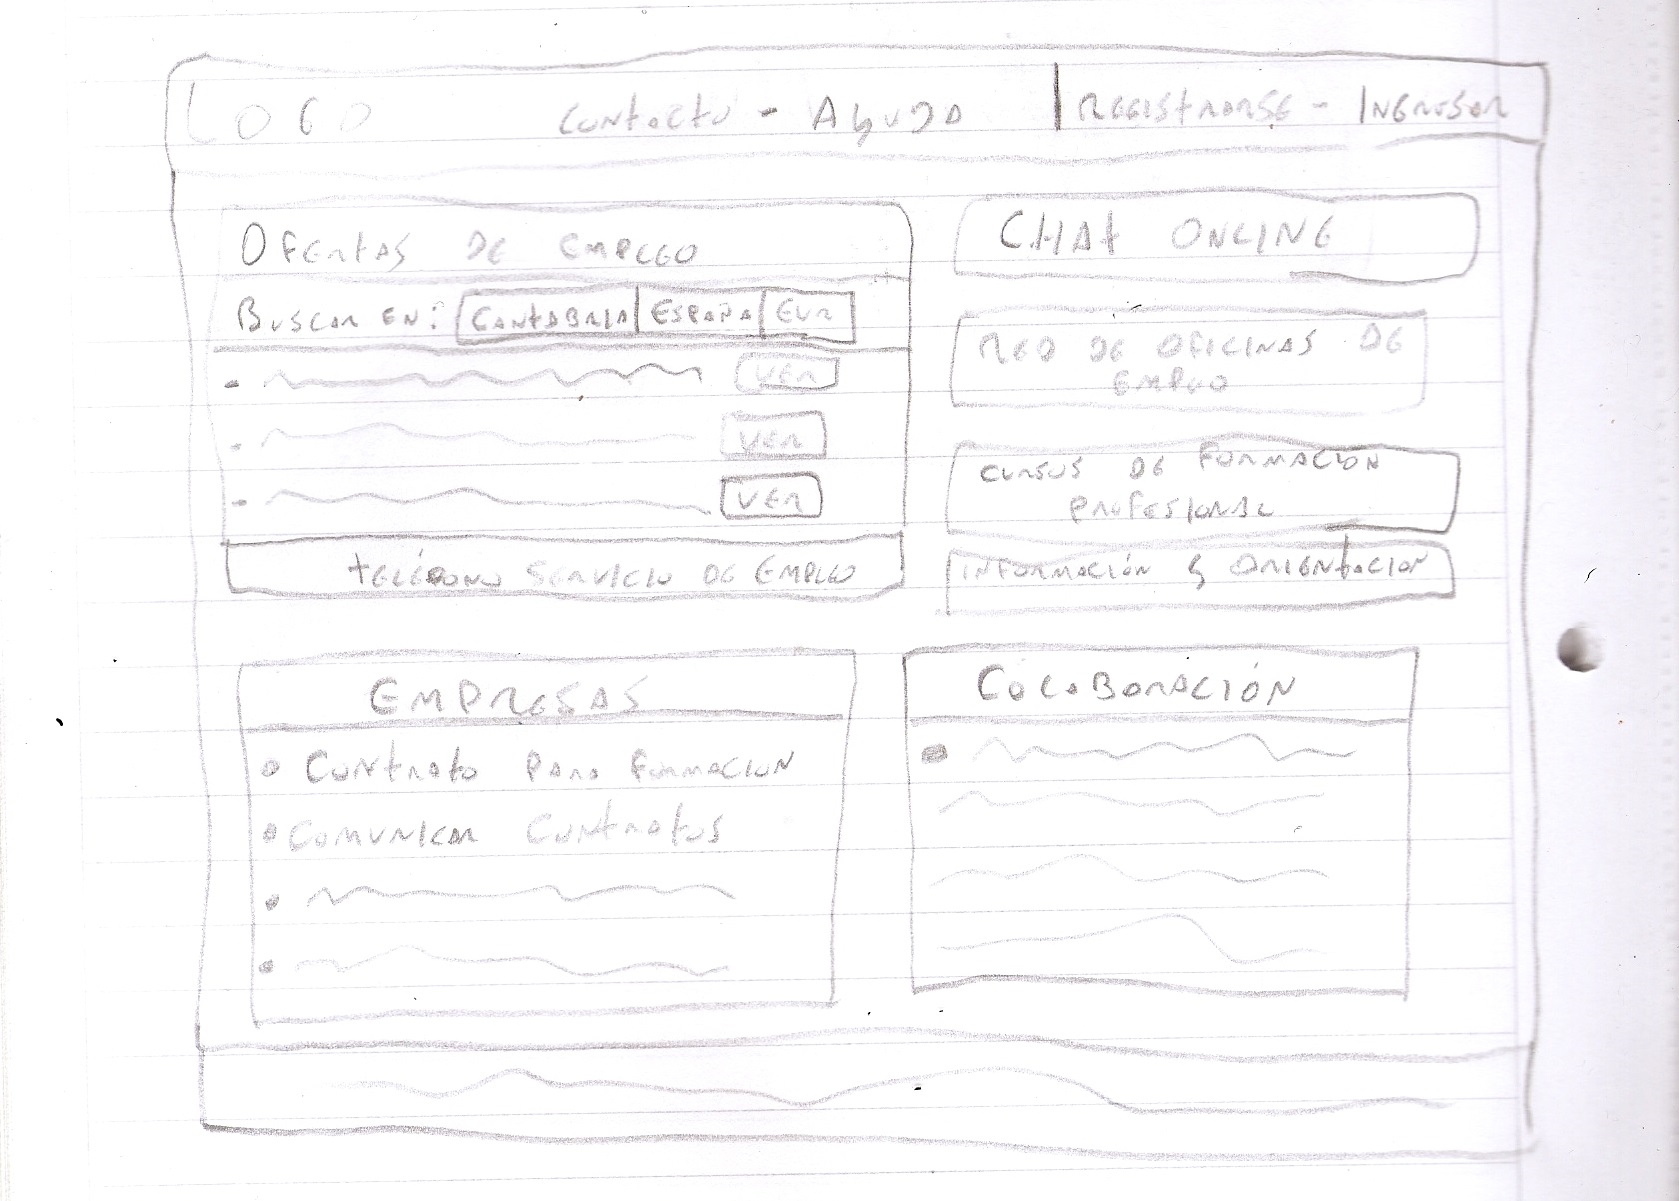 LOGO
Contacto - Ayuda
Registrarse - Ingresar
Ofertas de empleo
Buscar en: Cantabria España Eur
Ver
Ver
Ver
Teléfono servicio de empleo
Chat online
Red de oficinas de
empleo
Cursos de formación
profesional
Información y orientación
Empresas
Contrato para formacion
Comunicar contratos
Colaboración